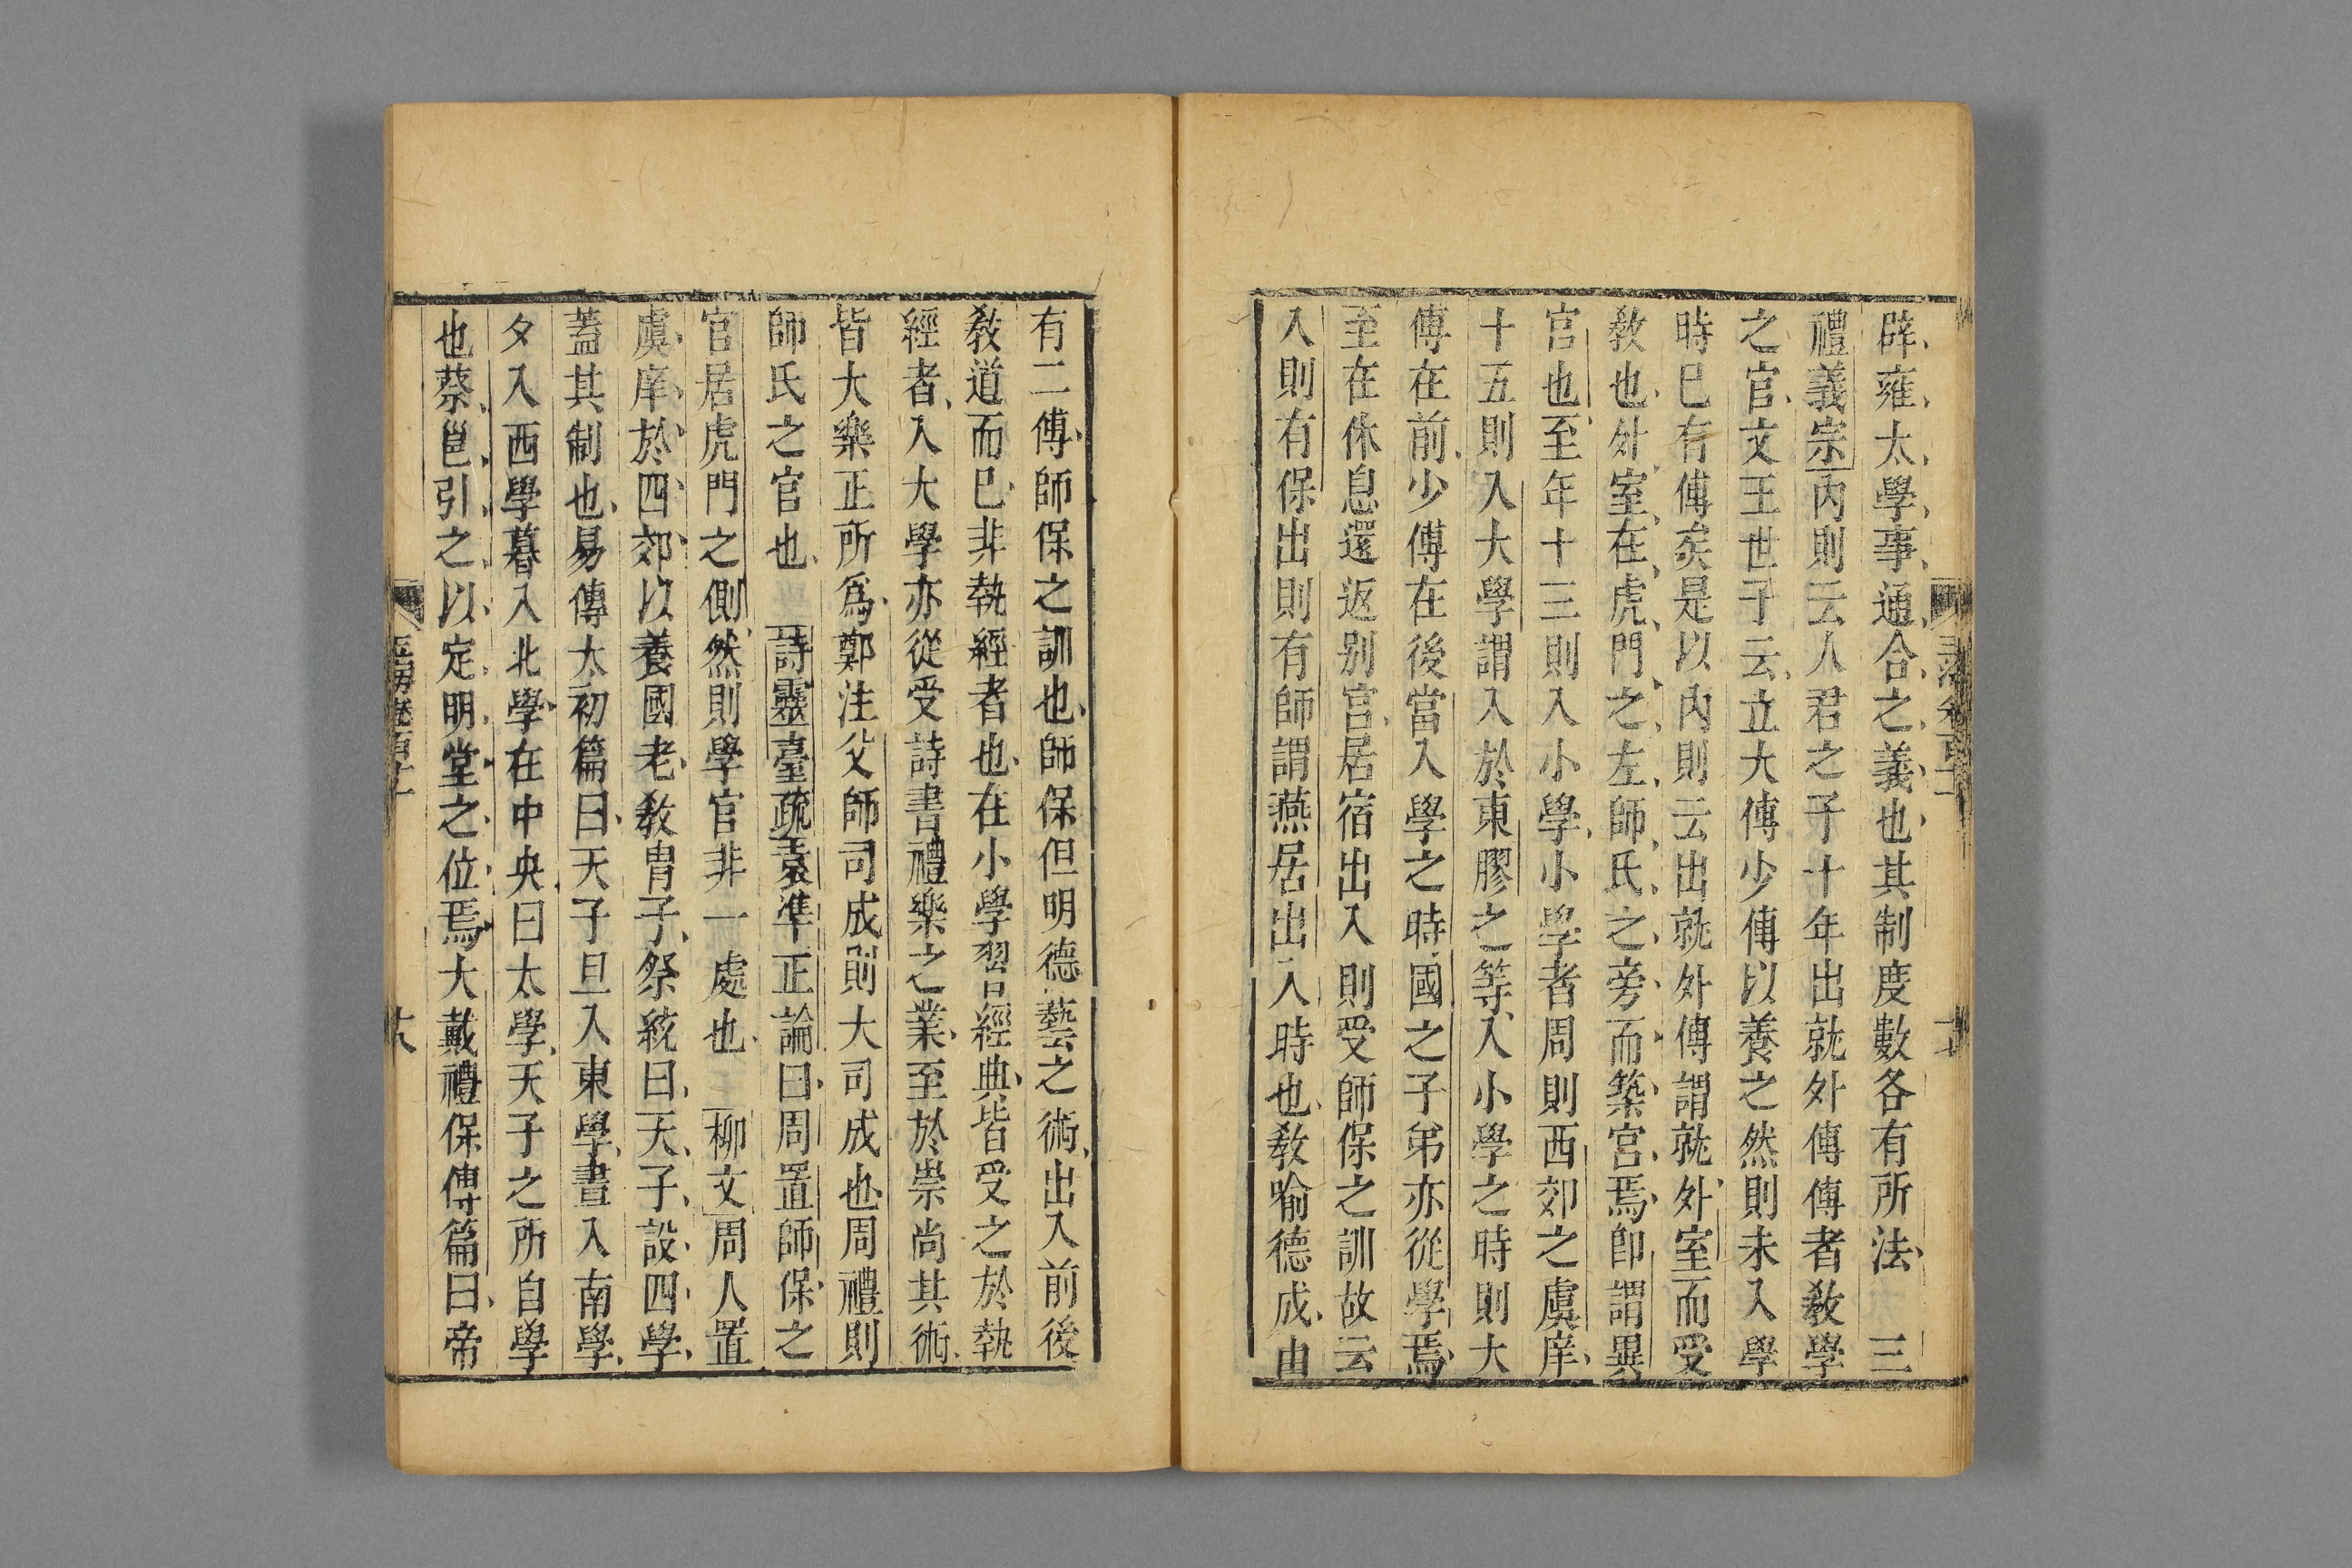 辟雍太學事通合之義也其制度數各有所法　三
禮義宗内則云人君之子十年出就外傅傅者教學
之官文王世子云立大傅少傅以養之然則未入學
時已有傅矣是以內則云出就外傅謂就外室而受
敎也外室在虎門之左師氏之旁而築宮焉卽謂異
宮也至年十三則入小學小學者周則西郊之虞庠
十五則入大學謂入於東膠之等入小學之時則大
傅在前少傅在後當入學之時國之子弟亦從學焉
至在休息還返別宮居宿出入則受師保之訓故云
入則有保出則有師謂燕居出入時也敎喻德成由
有二傅師保之訓也師保但明德藝之術出入前後
敎道而已非執經者也在小學習經典皆受之於執
經者入大學亦從受詩書禮樂之業至於崇尚其術
皆大樂正所爲鄭注父師司成則大司成也周禮則
師氏之官也　詩靈臺疏袁準正論曰周置師保之
官居虎門之側然則學官非一處也　柳文周人置
虞庠於四郊以養國老敎胄子祭統曰天子設四學
蓋其制也易傳太初篇曰天子旦入東學晝入南學
夕入西學暮入北學在中央曰太學天子之所自學
也蔡邕引之以定明堂之位焉大戴禮保傅篇曰帝